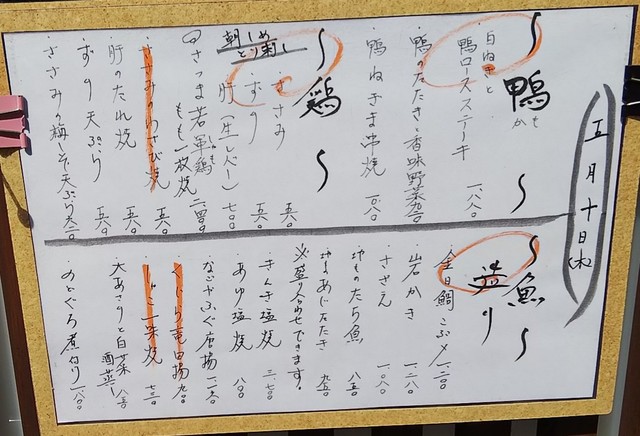 五月十日(木)
〜鴨〜
かも
白ねぎと
鴨ロースステーキ 一、八八〇
鴨のたたきと香味野菜 九二〇
鴨ねぎま串焼
〜鶏〜
朝じめ
とり刺し
ささみ 五八〇
ずり 五八〇
肝(生レバー) 七〇〇
さつま若軍鶏
もも一枚焼 二、四〇〇
ささみのわさび焼 五八〇
肝のたれ焼 五八〇
ずり天ぷら 五八〇
ささみの梅しそ天ぷら
〜魚〜
造り
金目鯛こぶ〆
岩がき 一、二八〇
さざえ 一、〇八〇
地ものたら魚 八五〇
地あじたたき 九五〇
※盛り合わせできます。
きんき塩焼 三、七〇〇
あゆ塩焼 八〇〇
なごやふぐ唐揚
くじら竜田揚
大あさりと白菜
酒蒸し
のどぐろ煮付け